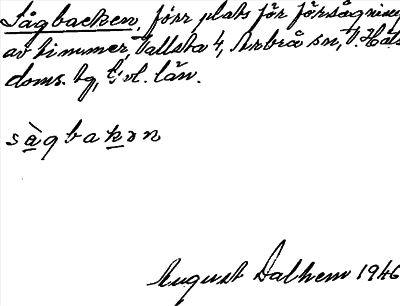 Sågbacken, förr plats för försågning
av timmer, Vallsta 4, Arbrå sn, V. Häls
doms. tg, Gvl. län.
sågbakɘn
August Dalhem 1946